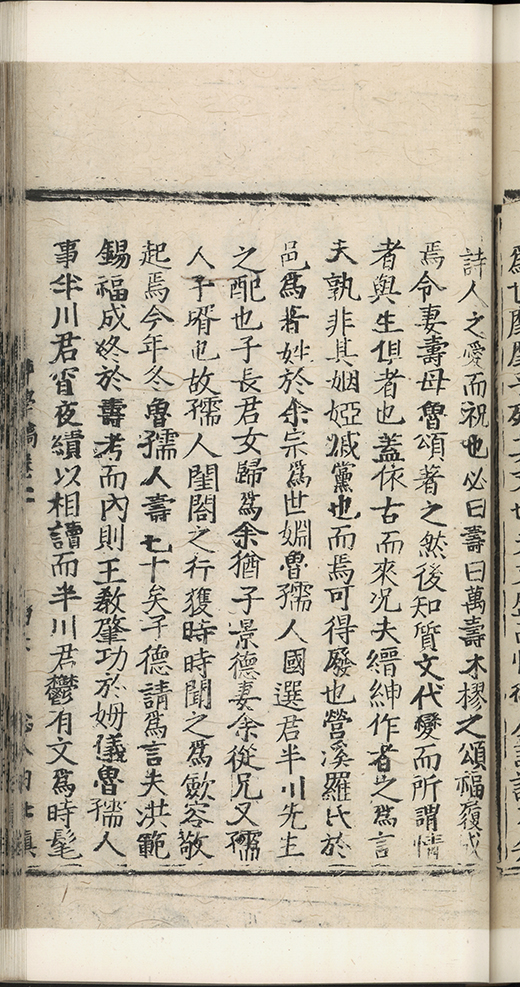 詩人之愛而祝也必曰壽曰萬壽木樛之頌福履成
焉令妻壽母魯頌著之然後知質文代變而所謂情
者與生俱者也蓋依古而來况夫縉紳作者之爲言
夫孰非其姻婭戚黨也而焉可得廢也營溪羅氏於
邑爲著姓於余宗爲世婣魯孺人國選君半川先生
之配也子長君女歸爲余猶子景德妻余從兄又孺
人子壻也故孺人閨閤之行獲時時聞之爲歛容敬
起焉今年冬魯孺人壽七十矣子德請爲言夫洪範
錫福成終於壽考而內則王敎肇功於姆儀魯孺人
事半川君宵夜績以相讀而半川君鬱有文爲時髦
稿卷二